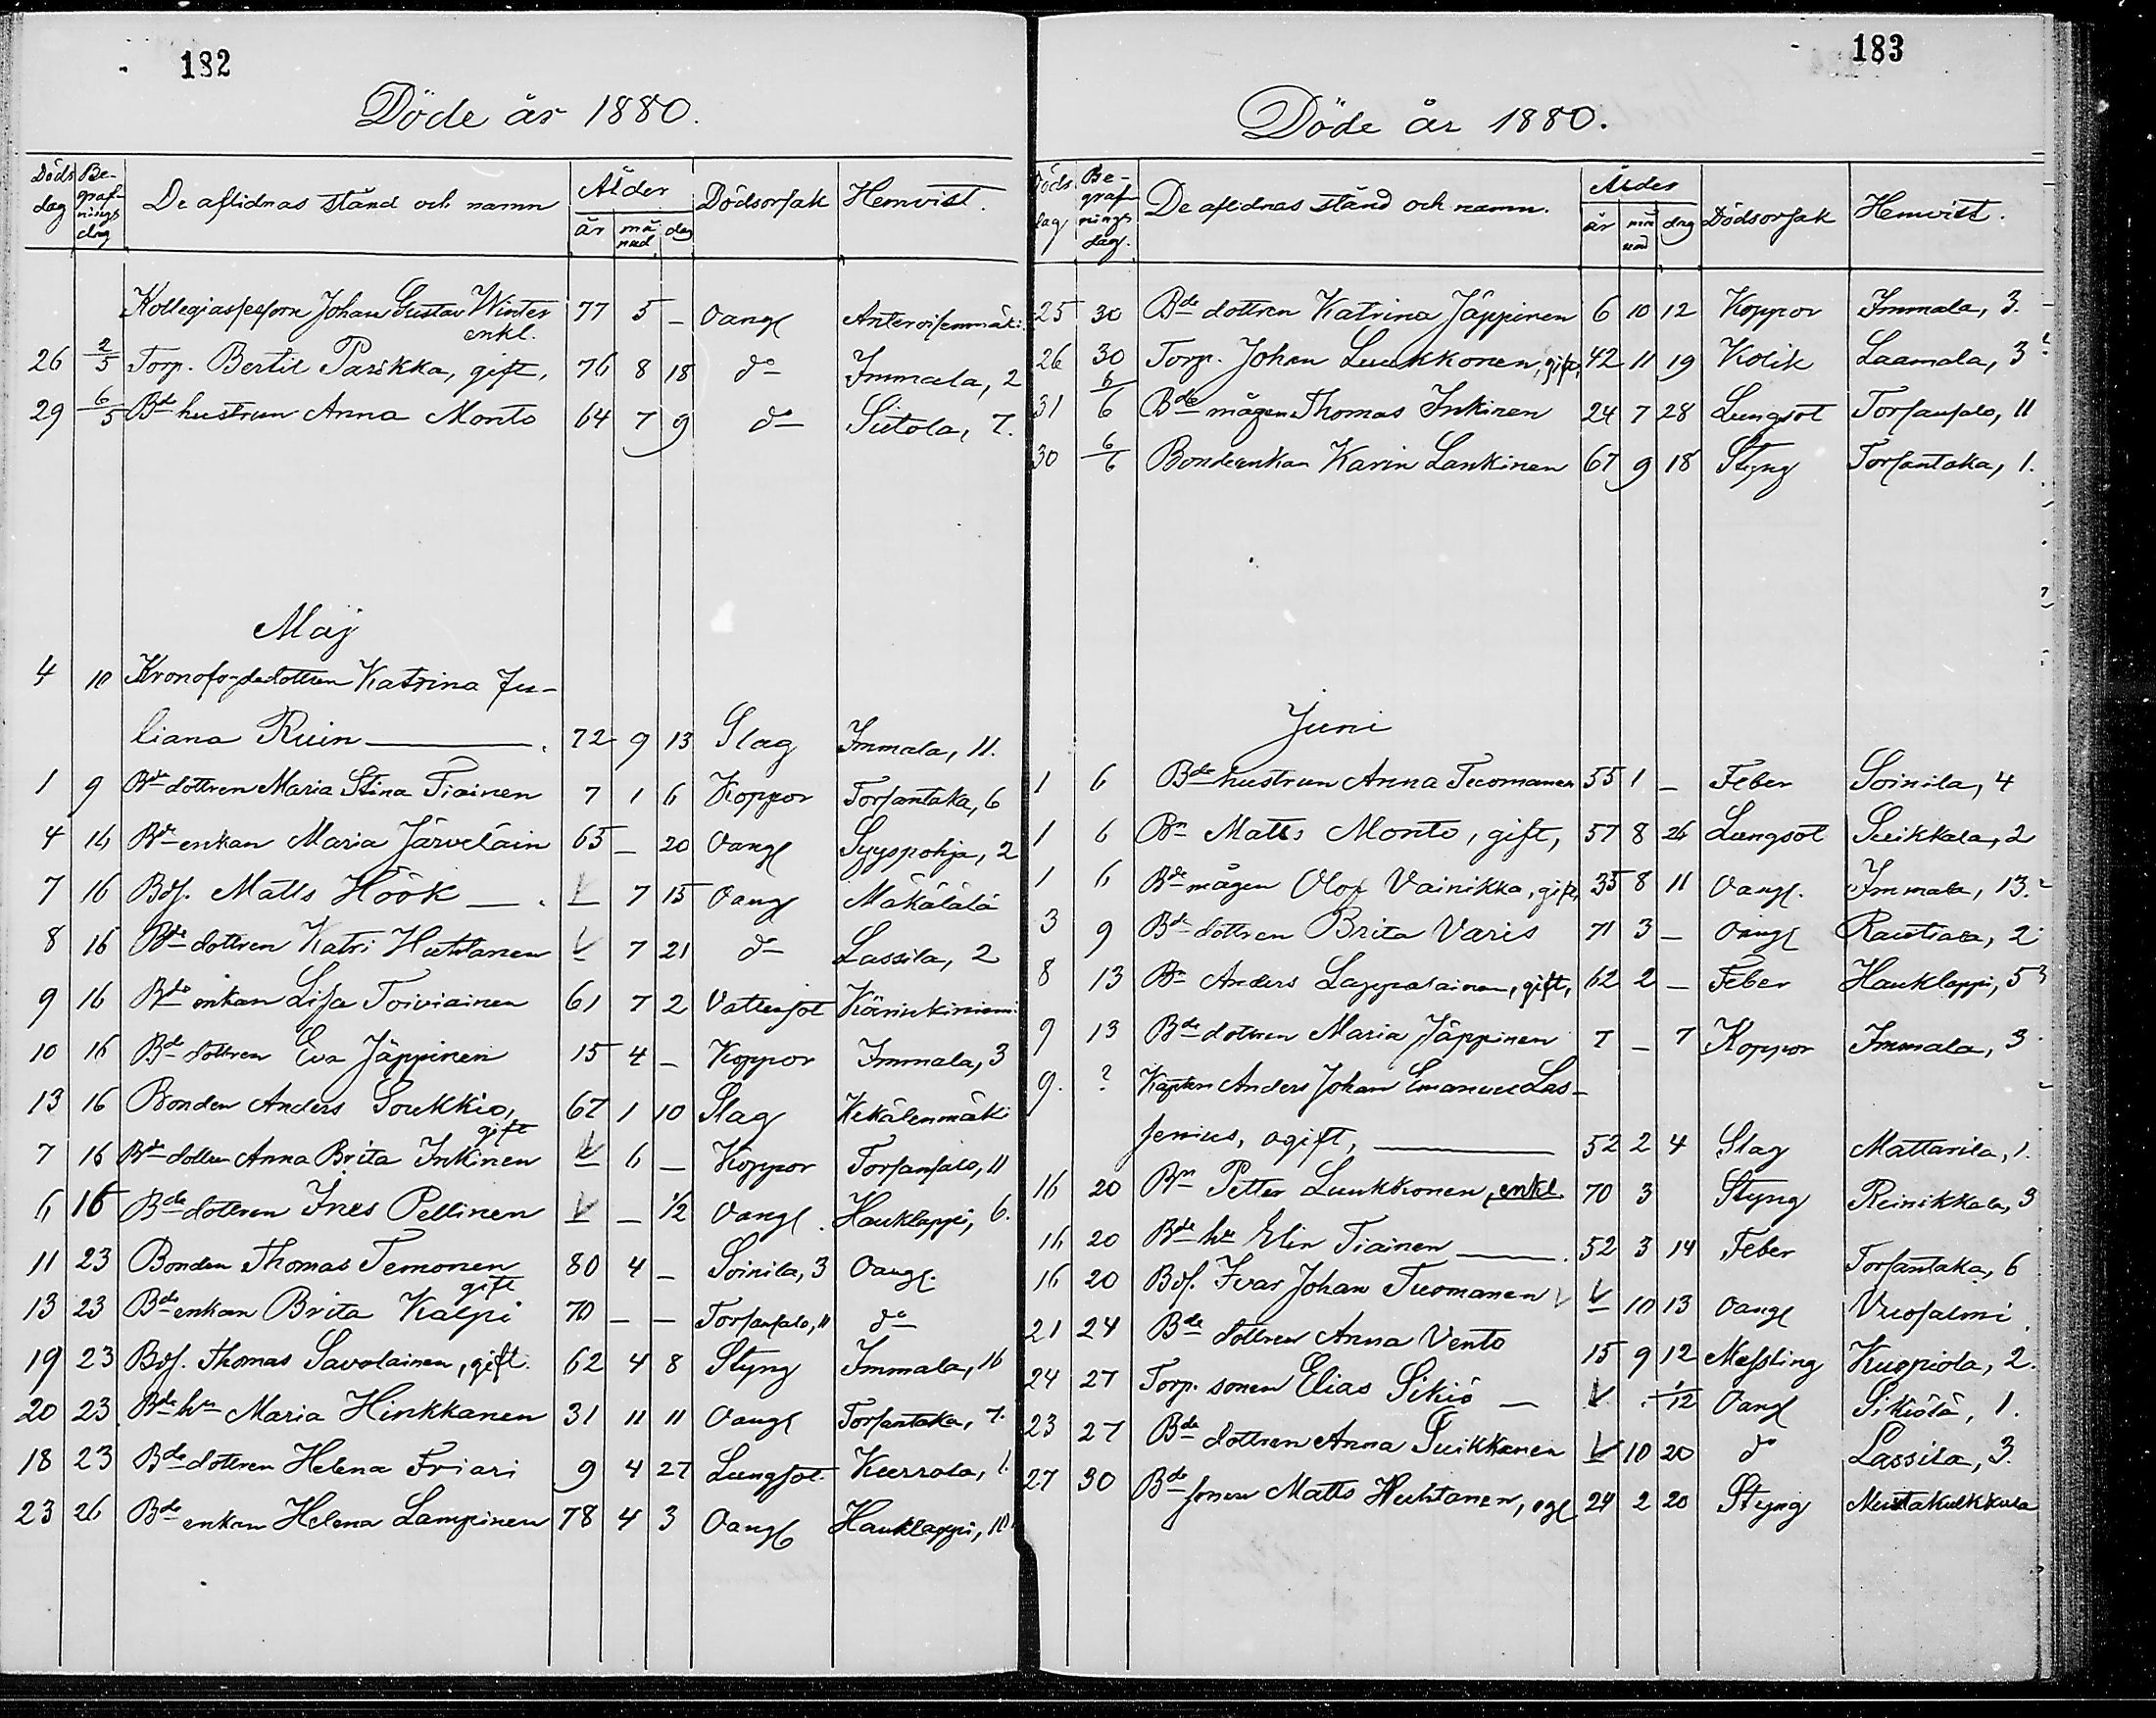 182
Döde år 1880.
Döds dag Be-grafnings dag De aflidnas stånd och namn Ålder år månad dag Dödsorsak Hemvist.
Kollegiassessorn Johan Gustav Winter enkl. 77 5 – Oangf
26 2/5 Torp. Bertil Parikka, gift, 76 8 18 do Immala, 2
29 6/5 Bde hustrun Anna Monto 64 7 9 do Siitola, 7.
Maj
4 10 Kronofogdedottren Katrina Ju-
liana Ruin 72 9 13 Slag Immala, 11.
1 9 Bde dottren Maria Stina Tiainen 7 1 6 Koppor Torsantaka, 6
4 16 Bde enkan Maria Järveläin 65 – 20 Oangf Syyspohja, 2
7 16 Bds. Matts Höök – 7 15 Oangf Mäkälälä
8 16 Bde dottren Katri Huhtanen – 7 21 do Lassila, 2
9 16 Bde enkan Lisa Toiviainen 61 7 2 Vattensot Kärinkiniemi
10 16 Bde dottren Eva Jäppinen 15 4 – Koppor Immala, 3
13 16 Bonden Anders Soukkio, gift 67 1 10 Slag Kekälenmäki
7 16 Bde dottren Anna Brita Inkinen – 6 – Koppor Torsansalo, 11
6 16 Bde dottren Ines Pellinen – – 1/2 Oangf. Hauklappi, 6.
11 23 Bonden Thomas Temonen gift 80 4 – Soinila, 3 Oangf.
13 23 Bde enkan Brita Kalpi 70 – – Torsansalo, 11 do
19 23 Bds. Thomas Savolainen, gift. 62 4 8 Styng Immala, 16
20 23 Bde hn Maria Hinkkanen 31 11 11 Oangf Torsantaka, 7.
18 23 Bde dottren Helena Friari 9 4 27 Lungsot Kurrola, 1.
23 26 Bde enkan Helena Lampinen 78 4 3 Oangf Hauklappi, 10
183
Döde år 1880.
Döds dag Be-grafnings dag. De aflidnas stånd och namn. Ålder år månad dag Dödsorsak Hemvist.
25 30 Bde dottren Katrina Jäppinen 6 10 12 Koppor Immala, 3.
26 30 Torp. Johan Luukkonen, gift, 42 11 19 Kolik Laamala, 3
31 6/6 Bde mågen Thomas Inkinen 24 7 28 Lungsot Torsansalo, 11
30 6/6 Bondeenkan Karin Lankinen 67 9 18 Styng Torsantaka, 1.
Juni
1 6 Bde hustrun Anna Tuomanen 55 1 – Feber Soinila, 4
1 6 Bn Matts Monto, gift, 57 8 26 Lungsot Suikkala, 2
1 6 Bde mågen Olof Vainikka, gift, 35 8 11 Oangf. Immala, 13.
3 9 Bde dottren Brita Varis 71 3 – Oangf Rautiala, 2
8 13 Bn Anders Lappalainen, gift, 62 2 – Feber Hauklappi, 5
9 13 Bde dottren Maria Jäppinen 7 – 7 Koppor Immala, 3
9. ? Kapten Anders Johan Emanuel Las-
senius, ogift, 52 2 4 Slag Mattarila, 1.
16 20 Bn Petter Luukkonen, enkl. 70 3 Styng Reinikkala, 3
16 20 Bde hn Elin Tiainen 52 3 14 Feber Torsantaka, 6
16 20 Bds. Ivar Johan Tuomanen – 10 13 Oangf Vuosalmi
21 24 Bde dottren Anna Vento 15 9 12 Messling Kuopiola, 2.
24 27 Torp. sonen Elias Sikiö – 1/12 Oangf Sikiölä, 1.
23 27 Bde dottren Anna Suikkanen – 10 20 do Lassila, 3.
27 30 Bde sonen Matts Huhtanen, ogf 24 2 20 Styng Mustakulkkula